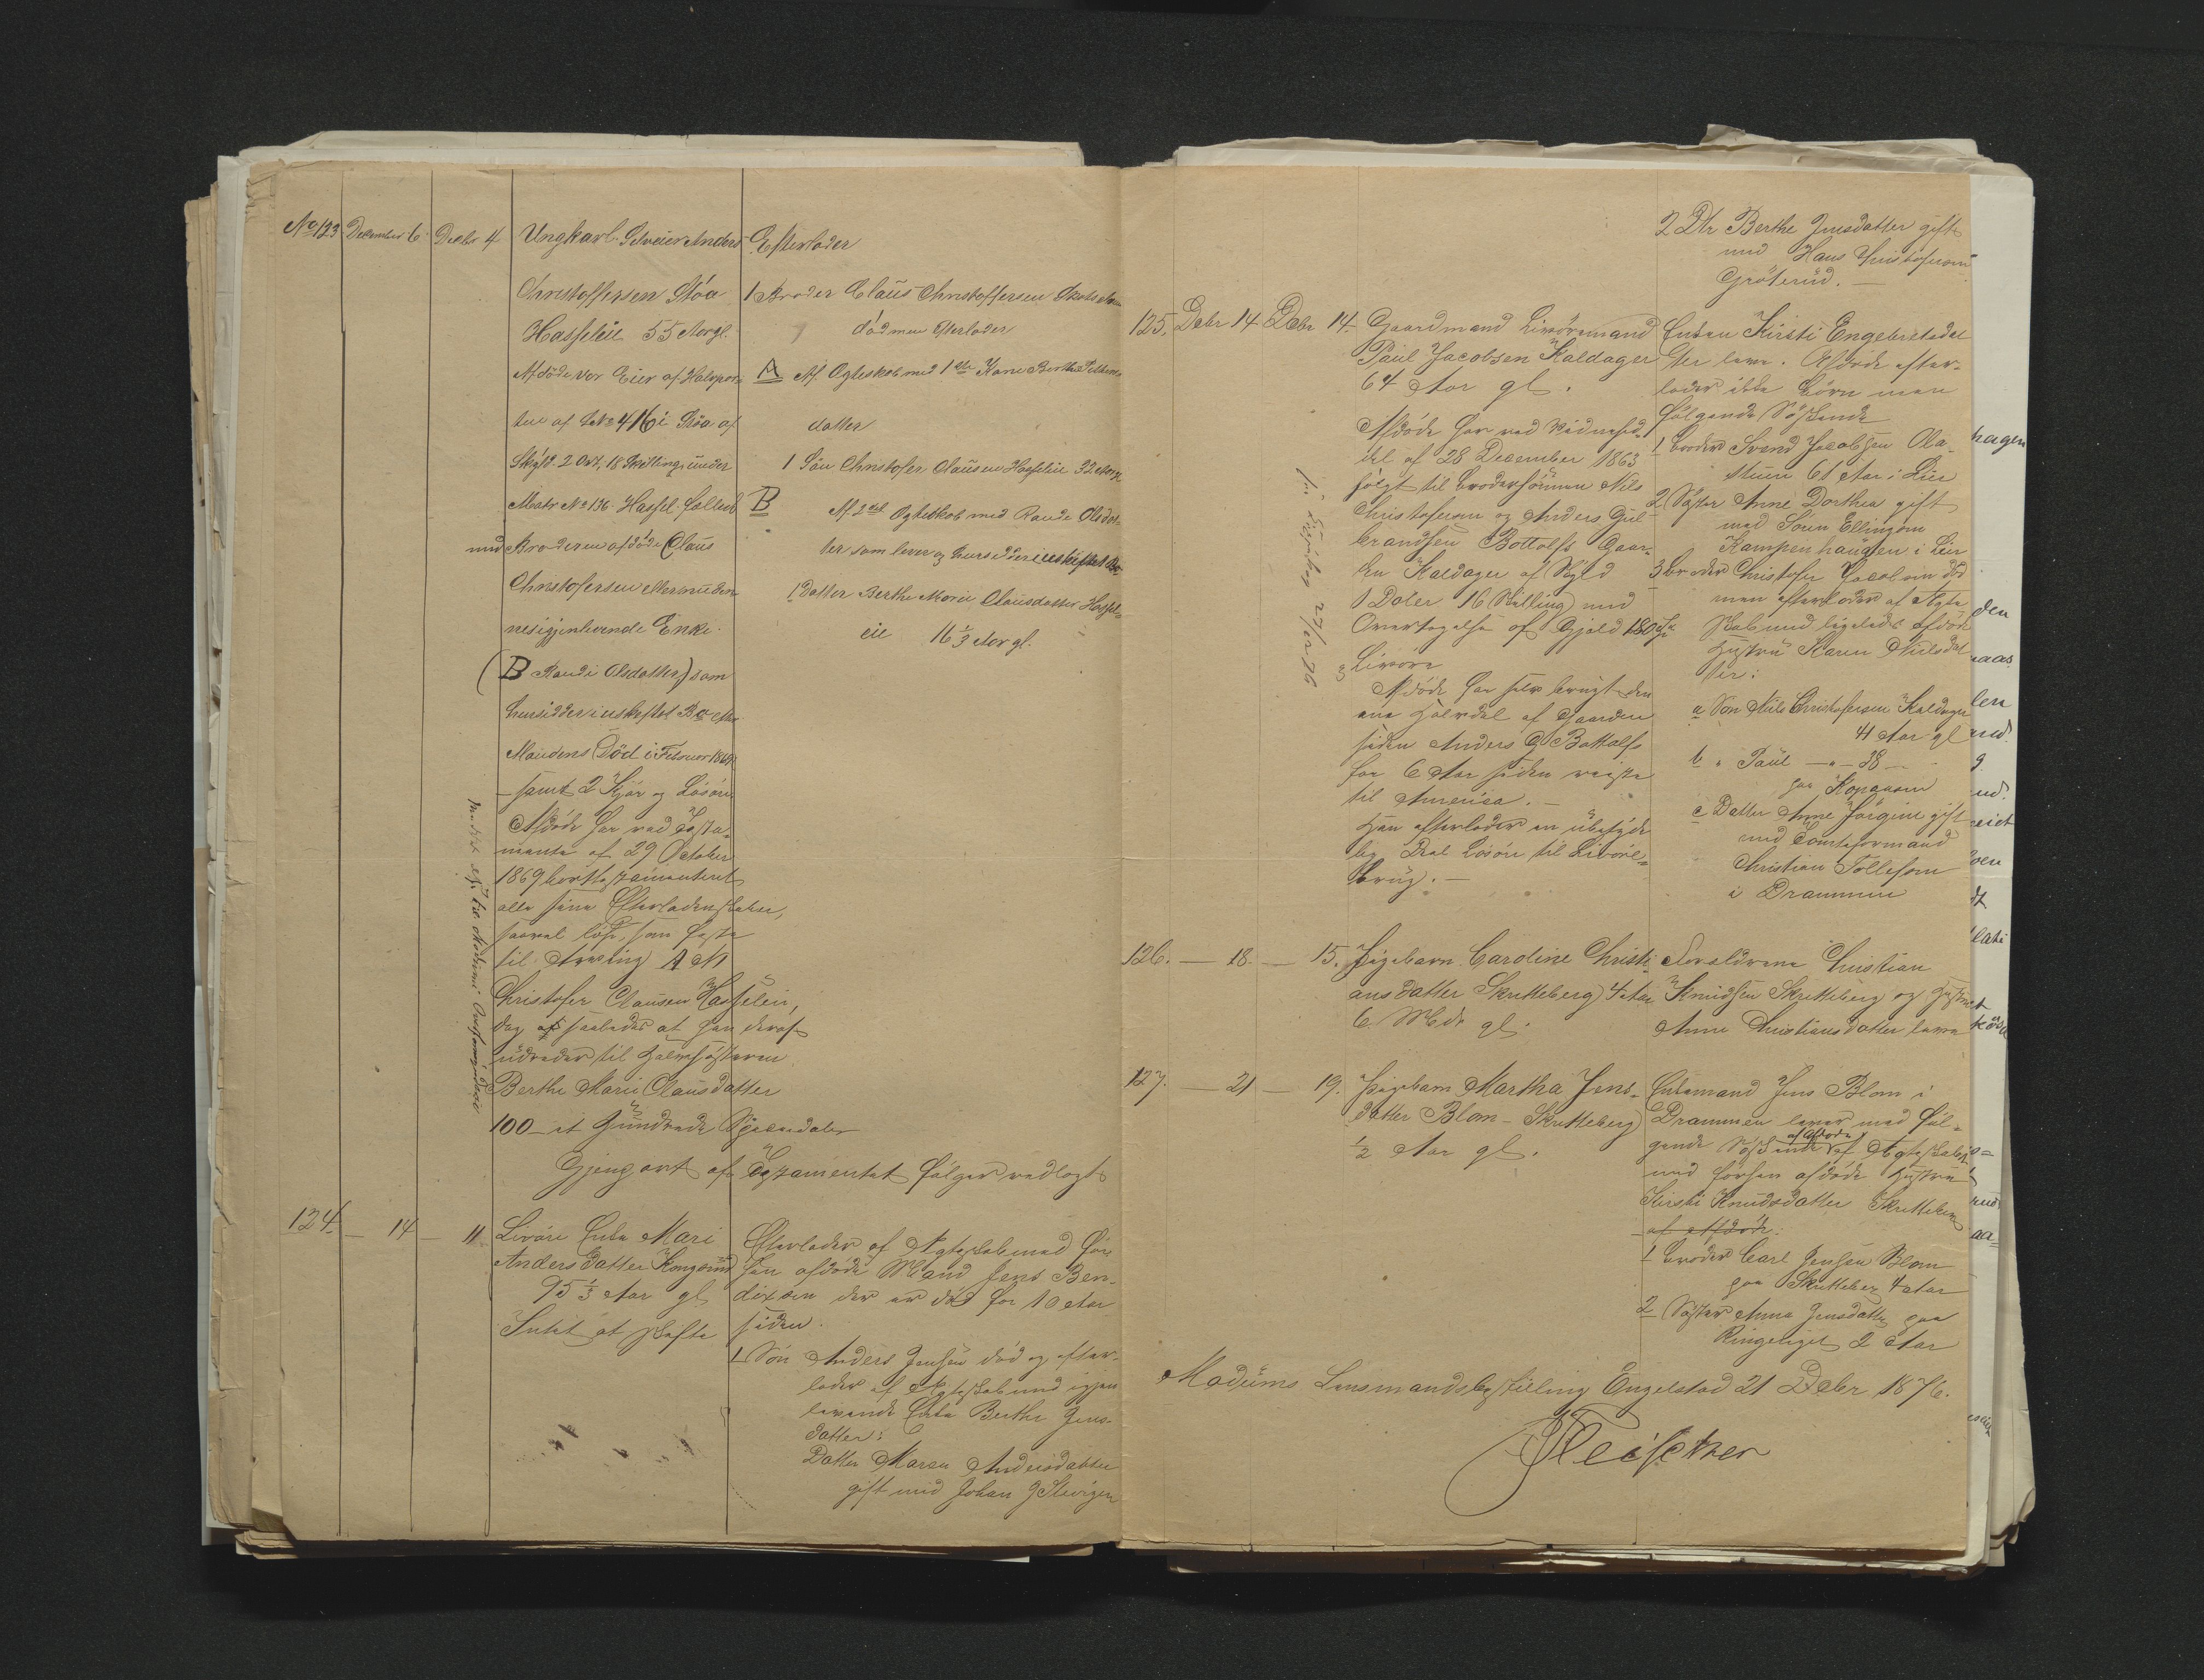 No 123 December 6. Decbr 4
Ungkarl. Selveier Anders
Christoffersen Stöa
Hasseleie 55 Aar gl.
Afdöde var Eier af Halvpar-
ten af Lbn 416 i Stöa af
Skyld. 2 Ort, 18 Skilling, under
Matr No 136 Hassel fælled
med Broderen afdöde Claus
Christofersen eller nu den-
nes igjenlevende Enke.
(B Randi Olsdatter) som
hensidder i uskiftet Bo efter
Mandens Död i Februar 1869
– samt 2 Kjör og Lösöre
Afdöde har ved Testa-
mente af 29 October
1869 borttestamenteret
alle sine Efterladenskaber,
saavel löst som faste
til Arving A N 1
Christofer Clausen Hasseleie,
dog saaledes at han deraf
udreder til Halvsösteren
Berthe Marie Clausdatter
100 – et Hundrede Speciedaler
Gjenpart af Testamentet fölger vedlagt
Efterlader
1 Broder Claus Christoffersen
död men efterlader
A Af Ægteskab med 1ste Kone Berthe
datter
1 Sön Christofer Clausen Hasseleie 32 Aar gl
B Af 2det Ægteskab med Randi Olsdat-
ter som lever og hensidder i uskiftet Bo
1 Datter Berthe Marie Clausdatter Hassel-
eie 16 1/3 Aar gl.
124 – 14 – 11
Livöre Enke Mari
Andersdatter Kongerud
95 1/3 Aar gl
Intet at skifte
Efterlader af Ægteskab med för
hen afdöde Mand Jens Ben-
dixen der er död for 10 Aar
siden.
1 Sön Anders Jensen död og efter-
lader af Ægteskab med igjen
levende Enke Berthe Jens-
datter:
Datter Maren Andersdatter
gift med Johan
2 Dtr Berthe Jensdatter gift
med Hans Christofersen
Gröterud. –
125. Debr 14 Debr 14.
Gaardmand Livöremand
Paul Jacobsen Kaldager
64 Aar gl.
Afdöde har ved
af 28 December 1863
solgt til Brodersönnen Nils
Christofersen og Anders Gul-
brandsen Bottolfs Gaar-
den Kaldager af Skyld
1 Daler 16 Skilling med
Overtagelse af Gjeld 180
& Livöre
Afdöde har selv brugt den
ene Halvdel af Gaarden
siden Anders G Bottolfs
for 6 Aar siden reiste
til America. –
Han efterlader en ubetyde
lig Deel Lösöre til Livöre-
brug. –
Enken Kirsti Engebretsdat
ter lever. Afdöde efter-
lader ikke Börn men
fölgende Söskende
1 Broder Svend Jacobsen Ola-
stuen 61 Aar i Lier
2 Söster Anne Dorthea gift
med Soren Ellingsen
Kampenhaugen i Lier
3 Broder Christofer Jacobsen död
men efterlader af Ægte
skab med ligeledes afdöde
Hustru Karen Nielsdat
ter:
a Sön Nils Christofersen Kaldager
41 Aar gl
b " Paul – " – 38 –
paa Kopaasen
c Datter Anne Jörgine gift
med Tomteformand
Christian Tollefsen
i Drammen
126. – 18 – 15.
Pigebarn Caroline Christi-
ansdatter Skretteberg 4 Aar
6 Mdr gl.
Forældrene Christian
Knudsen Skretteberg og Hustru
Anne Christiansdatter lever
127. – 21 – 19.
Pigebarn Martha Jens-
datter Blom – Skretteberg
1/2 Aar gl.
Enkemand Jens Blom i
Drammen lever med föl-
gende Söskende af Afdöde af Ægteskabet
med forhen afdöde Hustru
Kirsti Knudsdatter Skretteberg
af afdöde:
1 Broder Carl Jensen Blom
paa Skretteberg 4 Aar
2 Söster Anna Jensdatter paa
Ringeriget 2 Aar
Modums Lensmandsbestilling Engelstad 21 Debr 1876.
Fleischer